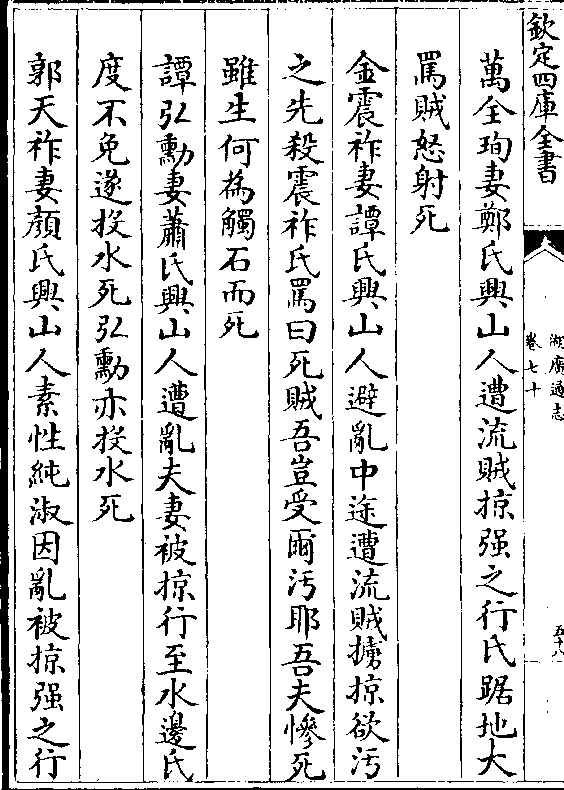 欽定四庫全書
湖廣通志
卷七十
五十八
萬全珣妻鄭氏興山人遭流賊掠强之行氏踞地大
罵賊怒射死
金震祚妻譚氏興山人避亂中途遭流賊擄掠欲污
之先殺震祚氏罵曰死賊吾豈受爾污耶吾夫慘死
雖生何為觸石而死
譚弘勳妻蕭氏興山人遭亂夫妻被掠行至水邊氏
度不免遂投水死弘勳亦投水死
郭天祚妻顏氏興山人素性純淑因亂被掠强之行